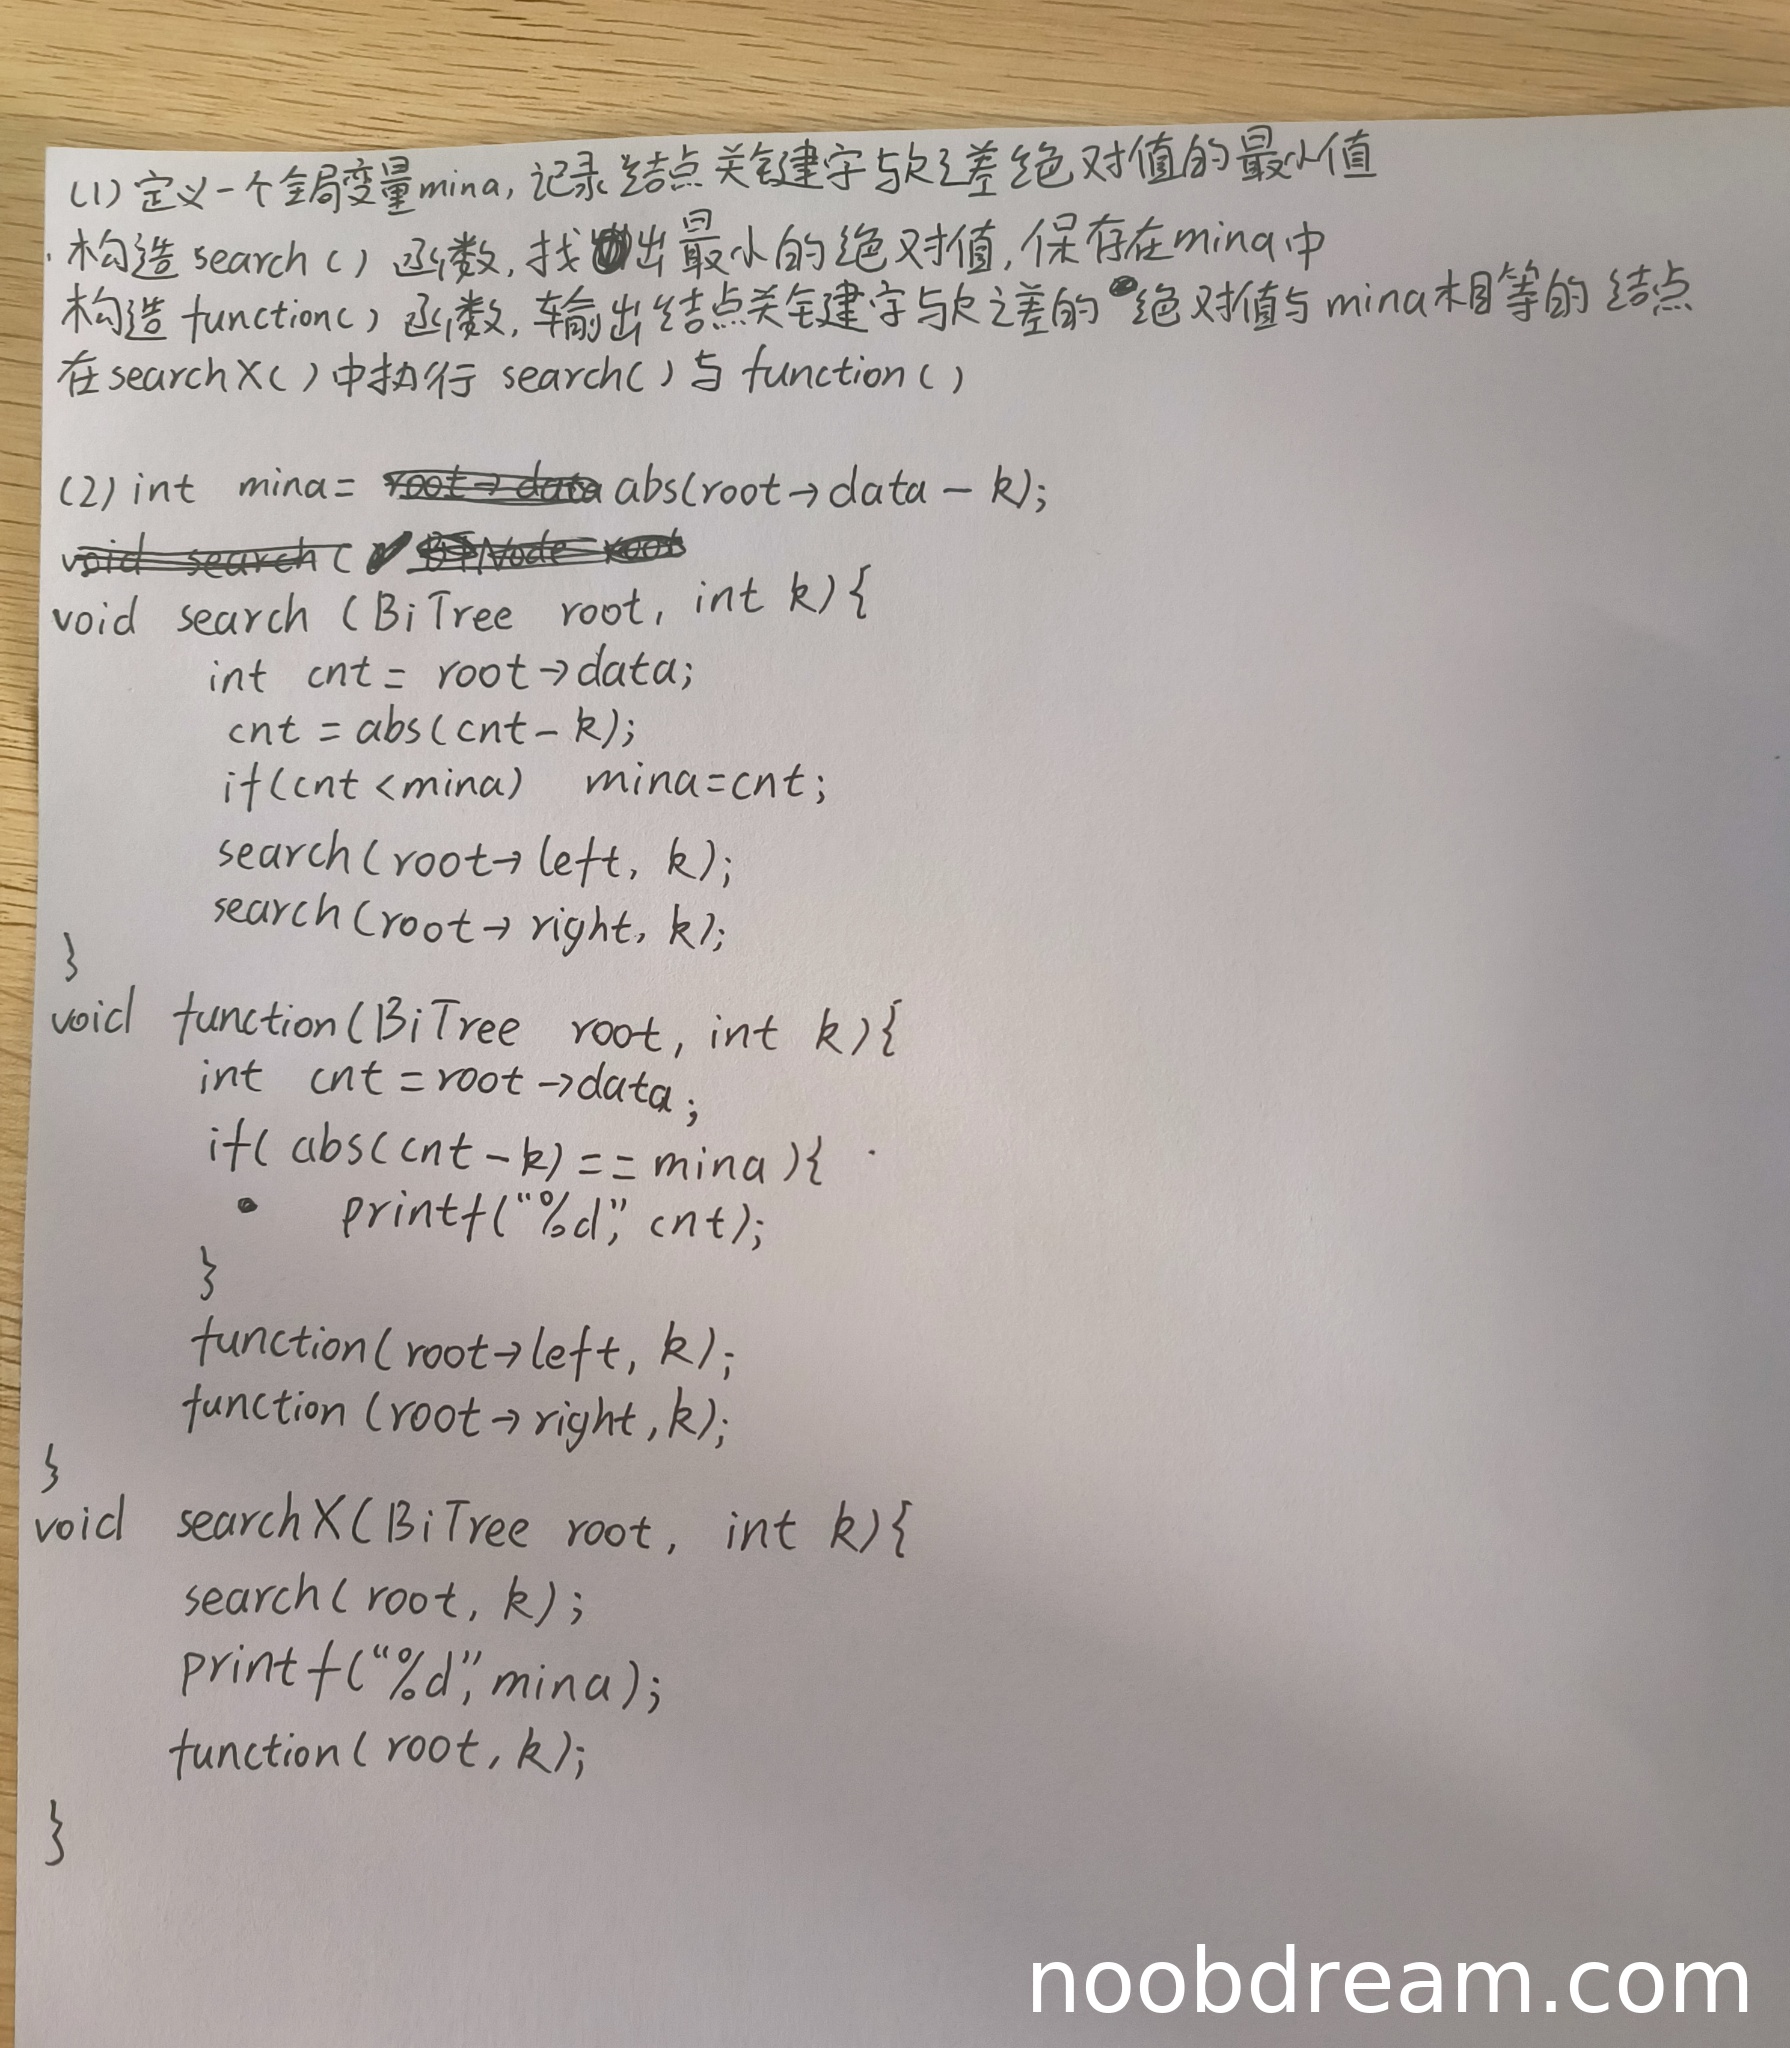 (1) 定义一个全局变量mina, 记录结点关键字与k之差绝对值的最小值
构造 search() 函数, 找出最小的绝对值, 保存在mina中
构造 function() 函数, 输出结点关键字与k之差的绝对值与mina相等的结点
在searchX()中执行 search()与 function()
(2) int mina= root→data abs(root→data - k);
void search( BiTNode root
void search (BiTree root, int k){
int cnt = root→data;
cnt = abs(cnt-k);
if(cnt <mina) mina=cnt;
search(root→left, k);
search(root→right, k);
}
void function(BiTree root, int k){
int cnt =root→data;
if( abs(cnt-k)==mina){
printf("%d", cnt);
}
function(root→left, k);
function (root→right, k);
}
void searchX(BiTree root, int k){
search(root, k);
printf("%d", mina);
function(root, k);
}
noobdream.com